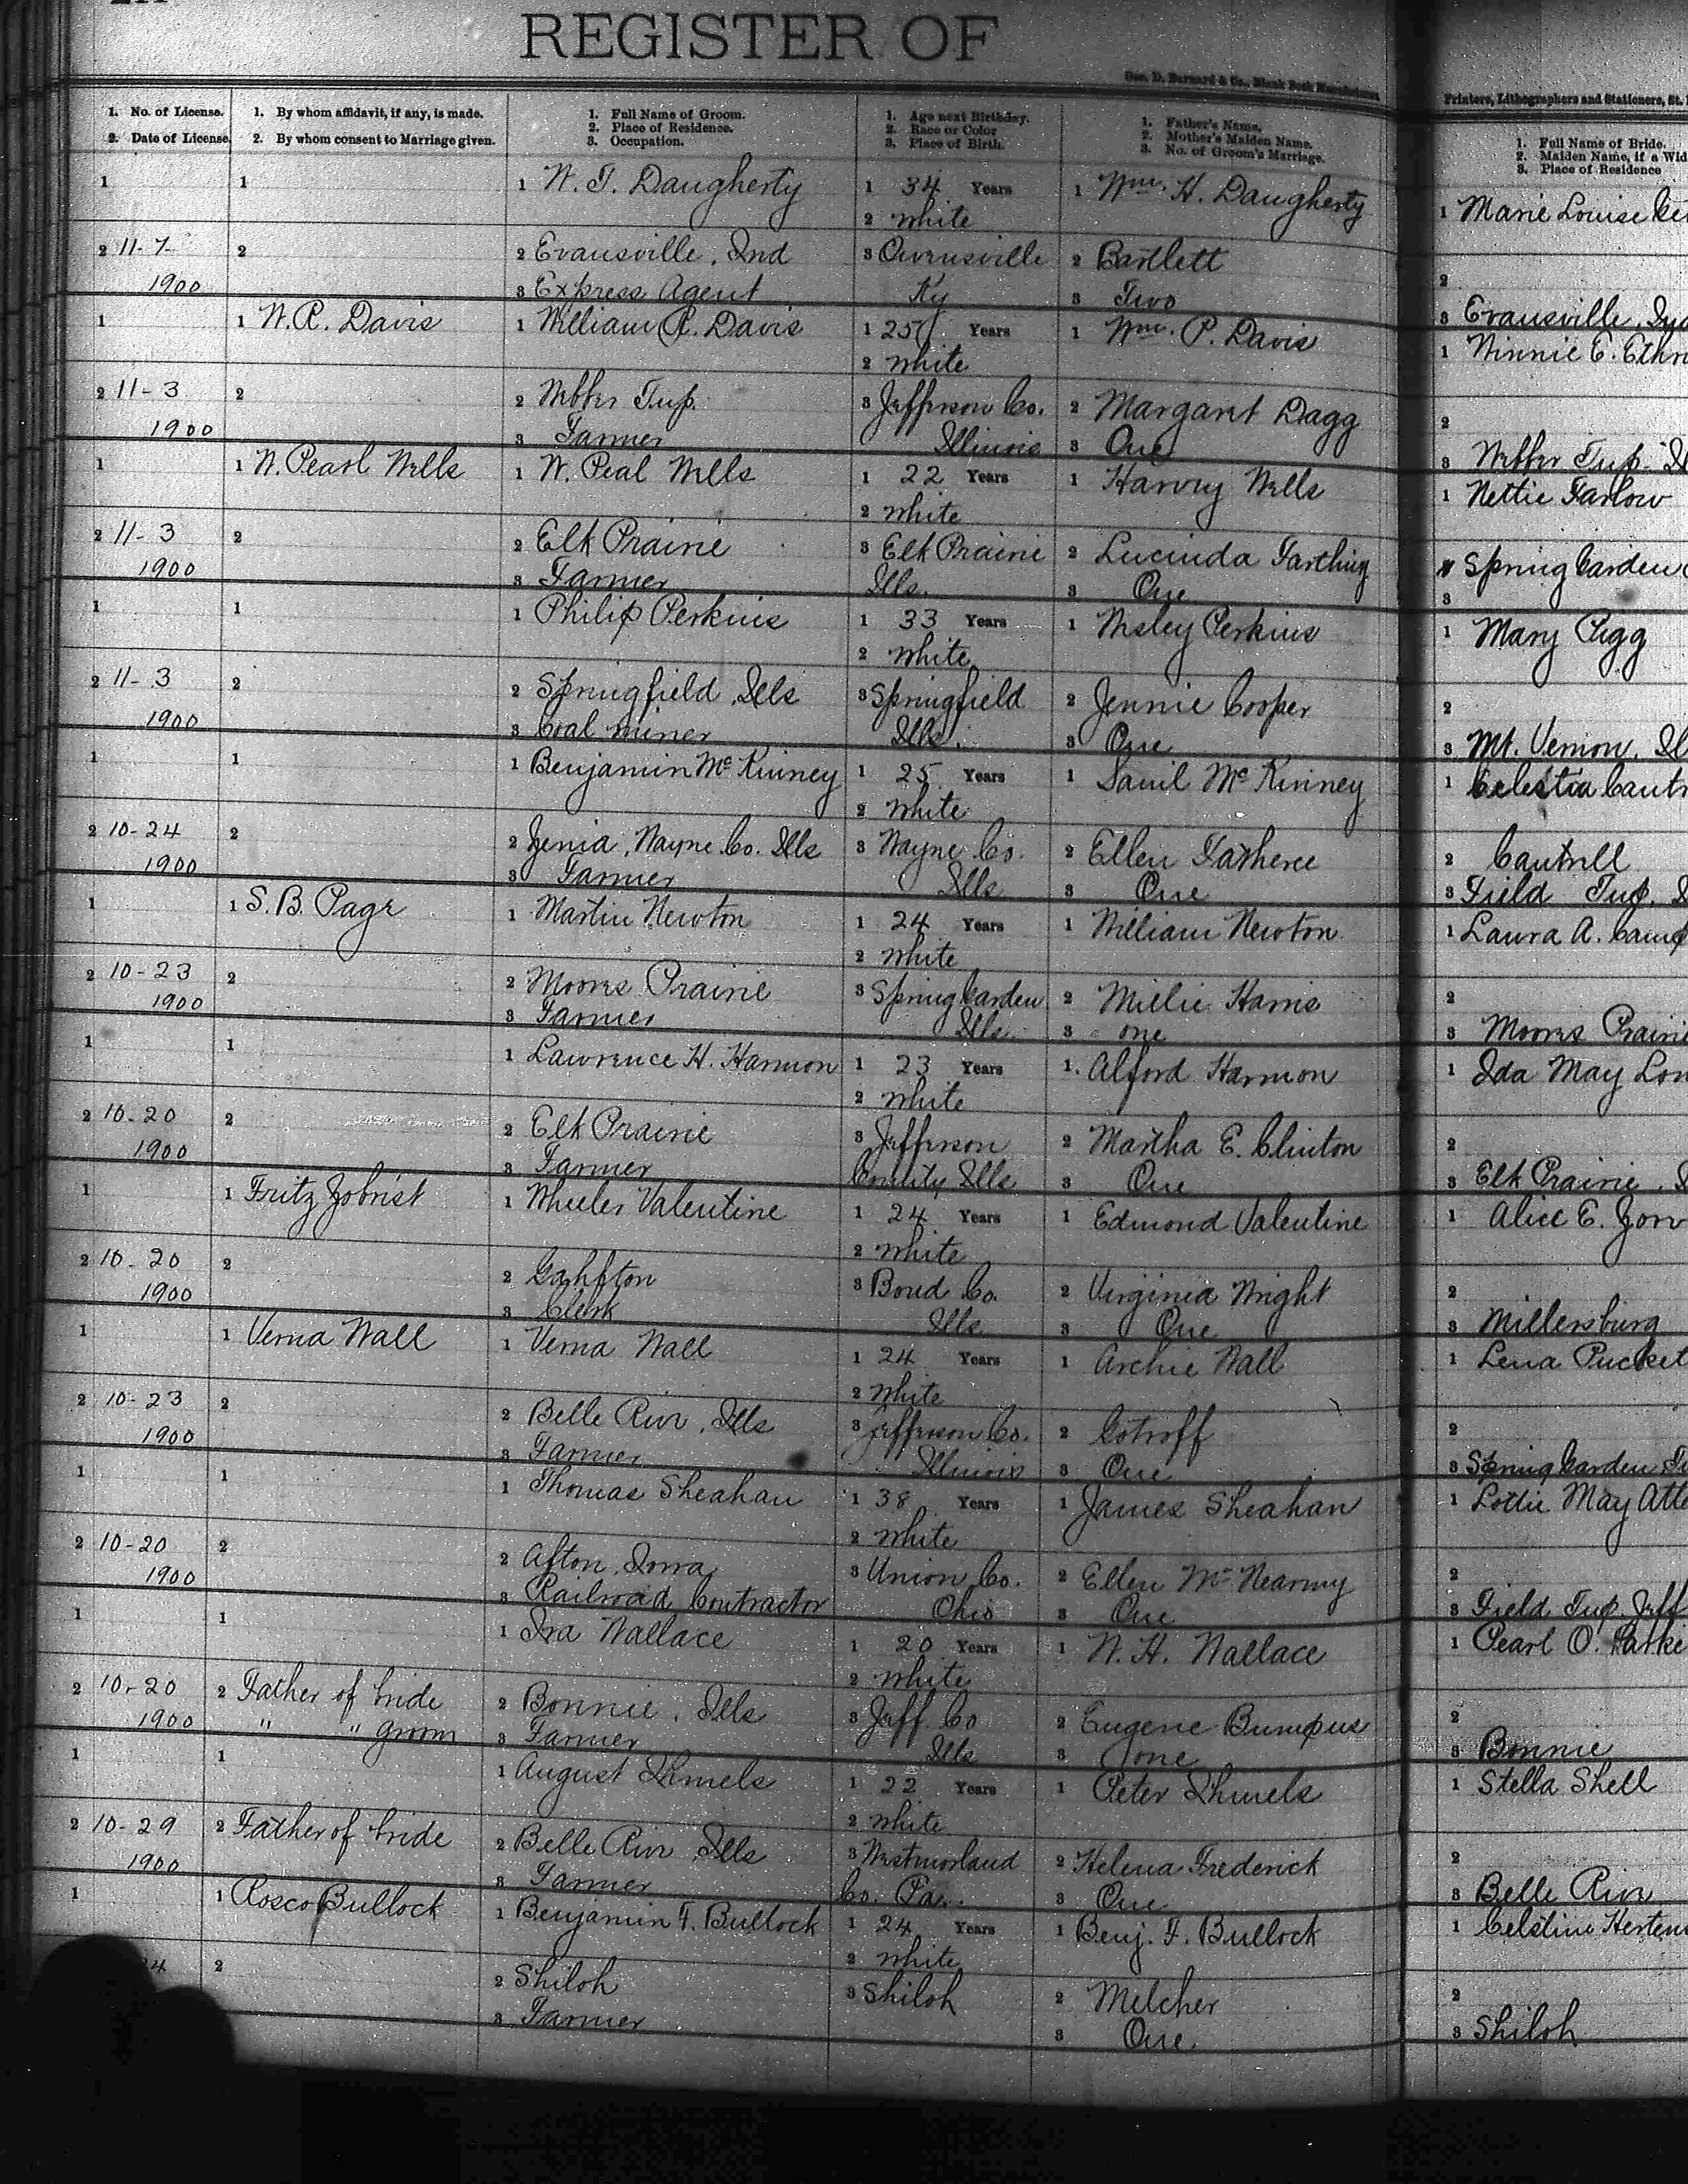 REGISTER OF
Geo. D. Barnard & Co., Blank Book Manufacturers,
Printers, Lithographers and Stationers, St.
1. No. of License.
2. Date of License.
1. By whom affidavit, if any, is made.
2. By whom consent to Marriage given.
1. Full Name of Groom.
2. Place of Residence.
3. Occupation.
1. Age next Birthday.
2. Race or Color
3. Place of Birth.
1. Father's Name.
2. Mother's Maiden Name.
3. No. of Groom's Marriage.
1. Full Name of Bride.
2. Maiden Name, if a Wid
3. Place of Residence
1 1 1 W. T. Daugherty 1 34 Years 1 Wm. H. Daugherty 1 Marie Louise
2 white
2 11-7- 2 2 Evansville, Ind 3 Owensville 2 Bartlett 2
1900 3 Express Agent Ky 3 Two 3 Evansville, Ind
1 1 W. R. Davis 1 William R. Davis 1 25 Years 1 Wm. P. Davis 1 Winnie E.
2 white
2 11-3 2 2 Webber Twp. 3 Jefferson Co. 2 Margaret Dagg 2
1900 3 Farmer Illinois 3 One 3 Webber Twp.
1 1 W. Pearl Wells 1 W. Peal Wells 1 22 Years 1 Harvy Wells 1 Nettie Farlow
2 white
2 11-3 2 2 Elk Prairie 3 Elk Prairie 2 Lucinda Farthing Spring Garden
1900 3 Farmer Ills. 3 One 3
1 1 1 Philip Perkins 1 33 Years 1 Wesley Perkins 1 Mary Pigg
2 white
2 11-3 2 2 Springfield, Ills 3 Springfield 2 Jennie Cooper 2
1900 3 Coal miner Ills. 3 One 3 Mt. Vernon,
1 1 1 Benjamin McKinney 1 25 Years 1 McKinney 1 Celestia
2 white
2 10-24 2 2 Zenia, Wayne Co. Ills 3 Wayne Co. 2 Ellen 2 Cantrell
1900 3 Farmer Ills 3 One 3 Field Twp.
1 1 S. B. Page 1 Martin Newton 1 24 Years 1 William Newton 1 Laura A.
2 white
2 10-23 2 2 Moores Prairie 3 Spring Garden 2 Millie Harris 2
1900 3 Farmer Ills. 3 one 3 Moores Prairie
1 1 1 Lawrence H. Harmon 1 23 Years 1. Alford Harmon 1 Ida May
2 white
2 10-20 2 2 Elk Prairie 3 Jefferson 2 Martha E. Clinton 2
1900 3 Farmer County Ills 3 One 3 Elk Prairie,
1 1 Fritz Zobrist 1 Wheeler Valentine 1 24 Years 1 Edmond Valentine 1 Alice E.
2 white
2 10-20 2 2 3 Bond Co. 2 Virginia Wright 2
1900 3 Clerk Ills 3 One 3 Millersburg
1 1 Verna Wall 1 Verna Wall 1 24 Years 1 Archie Wall 1 Lena Pucket
2 white
2 10-23 2 2 Belle Rive, Ills 3 Jefferson Co. 2 Cotroff 2
1900 3 Farmer Illinois 3 One 3 Spring Garden
1 1 1 Thomas Sheahan 1 38 Years 1 James Sheahan 1 Lottie May
2 white
2 10-20 2 2 Afton, Iowa 3 Union Co. 2 Ellen 2
1900 3 Railroad Contractor Ohio 3 One 3 Field Twp. Jeff
1 1 1 Ira Wallace 1 20 Years 1 W. H. Wallace 1 Pearl O.
2 white
2 10-20 2 Father of bride 2 Bonnie, Ills 3 Jeff Co 2 Eugene Bumpus 2
1900 " " groom 3 Farmer Ills 3 one 3 Bonnie
1 1 1 August 1 22 Years 1 Peter 1 Stella Shell
2 white
2 10-29 2 Father of bride 2 Belle Rive Ills 3 Westmorland 2 Helena Frederick 2
1900 3 Farmer Co. Pa. 3 One 3 Belle Rive
1 1 Rosco Bullock 1 Benjamin F. Bullock 1 24 Years 1 Benj. F. Bullock 1 Celstine
2 white
24 2 2 Shiloh 3 Shiloh 2 Melcher 2
3 Farmer 3 One 3 Shiloh